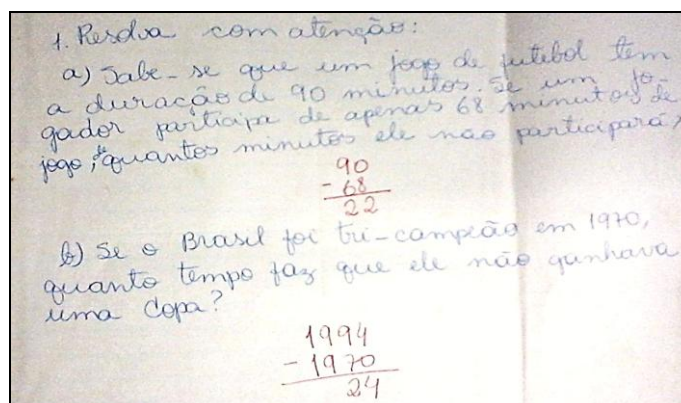 1. Resolva com atenção:
a) Sabe-se que um jogo de futebol tem
a duração de 90 minutos. Se um jo-
gador participa de apenas 68 minutos de
jogo, de quantos minutos ele não participará?
90
- 68
22
b) Se o Brasil foi tri-campeão em 1970,
quanto tempo faz que ele não ganhava
uma Copa?
1994
- 1970
24